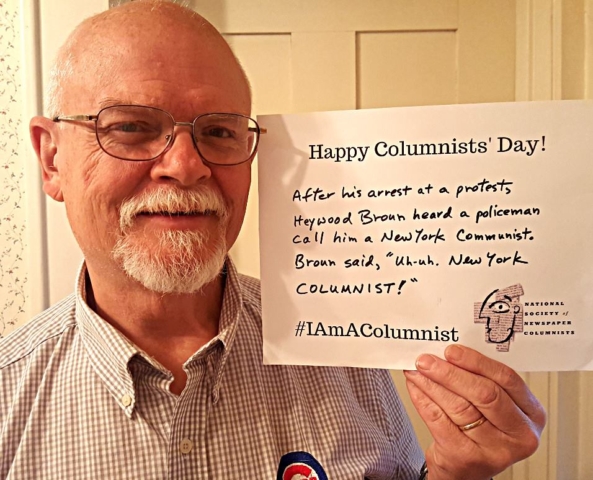 Happy Columnists' Day!
After his arrest at a protest,
Heywood Broun heard a policeman
call him a New York Communist.
Broun said, "Uh-uh. New York
COLUMNIST!"
#IAmAColumnist
NATIONAL
SOCIETY of
NEWSPAPER
COLUMNISTS